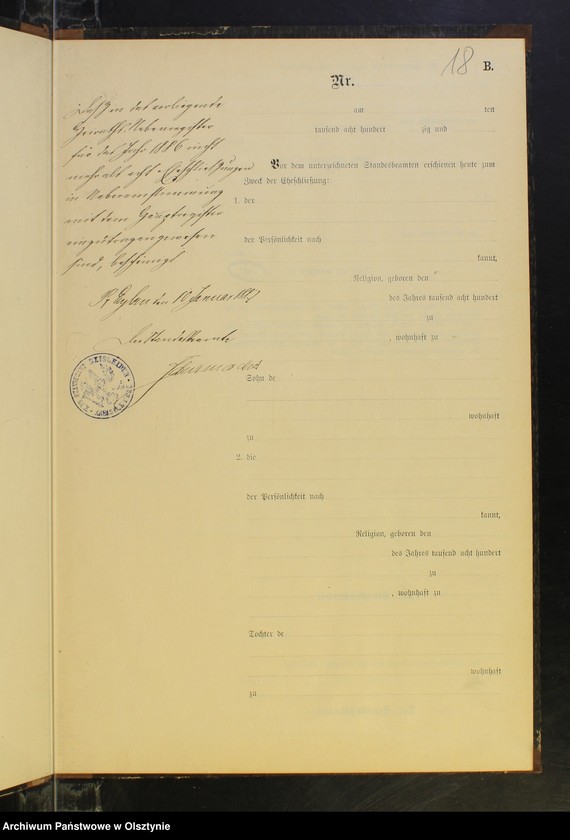 18 B.
Nr.
am ten
tausend acht hundert zig und
Vor dem unterzeichneten Standesbeamten erschienen heute zum
Zweck der Eheschließung:
1. der
der Persönlichkeit nach
kannt,
Religion, geboren den
des Jahres tausend acht hundert
zu
, wohnhaft zu
Sohn de
wohnhaft
zu
2. die
der Persönlichkeit nach
kannt,
Religion, geboren den
des Jahres tausend acht hundert
zu
, wohnhaft zu
Tochter de
wohnhaft
zu
Daß in das vorliegende
Heiraths-Nebenregister
für das Jahr 1886 nicht
mehr als acht Eheschließungen
in Uebereinstimmung
mit dem Hauptregister
eingetragen gewesen
sind, bescheinigt
Pr. Eylau den 10 Januar 1887
Der Standesbeamte
Archiwum Państwowe w Olsztynie